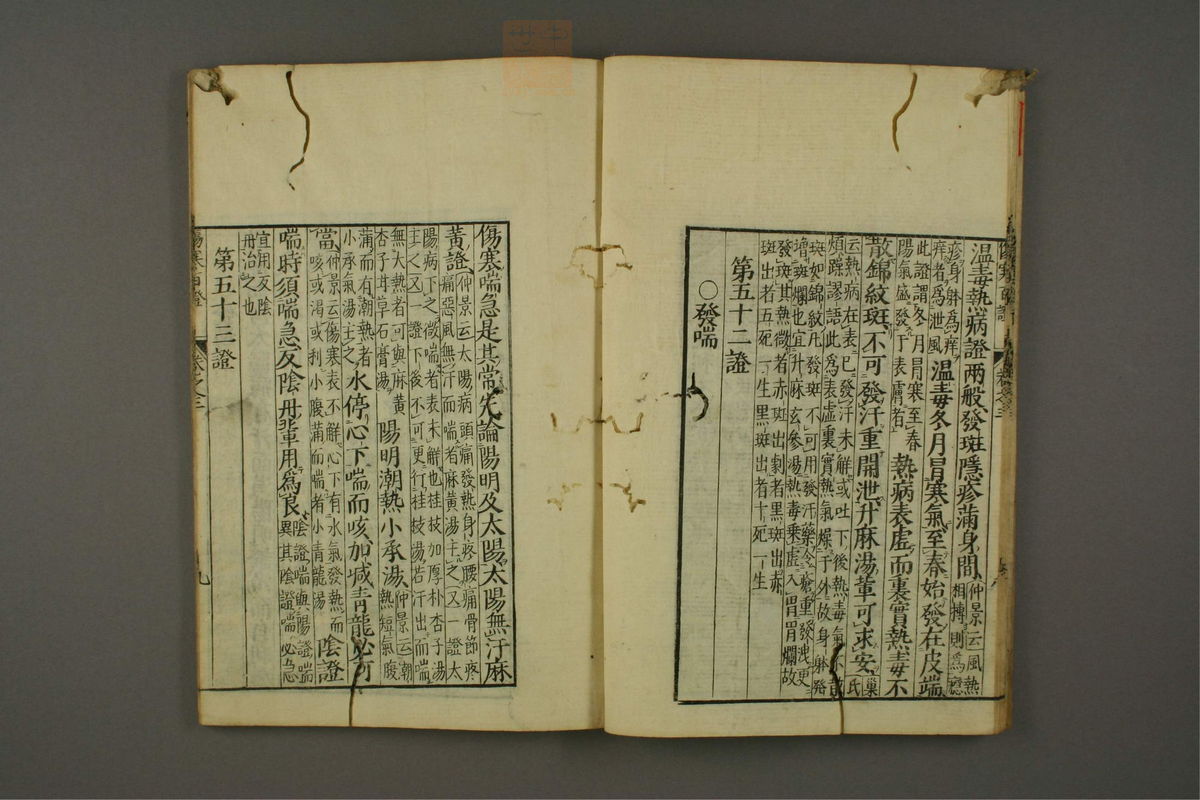 温毒熱病證兩般發斑隱疹滿身間仲景云風熱相搏則爲癮
疹身躰爲痒痒者爲泄風温毒冬月冒寒氣至春始發在皮端
此證謂冬月冒寒至春陽氣盛發于表膚者熱病表虛而裏實熱毒不
散錦紋斑不可發汗重開泄升麻湯輩可求安巢氏
云熱病在表已發汗未解或吐下後熱毒氣不散
煩躁謬語此爲表虛裏實熱氣燥于外故身躰發
斑如錦紋凡發斑不可用發汗藥令瘡重發洩更
增斑爛也宜升麻玄參湯熱毒乗虛入胃胃爛故
發斑其熱微者赤斑出劇者黑斑出赤
斑出者五死一生黑斑出者十死一生
第五十二證
○發喘
傷寒喘急是其常先論陽明及太陽太陽無汗麻
黃證仲景云太陽病頭痛發熱身疼腰痛骨節疼痛惡風無汗而喘者麻黃湯主之又一證太
陽病下之微喘者表未解也桂枝加厚朴杏子湯
主之又一證下後不可更行桂枝湯若汗出而喘
無大熱者可與麻黃杏子甘草石膏湯陽明潮熱小承湯仲景云潮熱短氣腹
滿而喘有潮熱者小承氣湯主之水停心下喘而咳加減青龍必可
當仲景云傷寒表不解心下有水氣發熱而咳或渴或利小腹滿而喘者小青龍湯陰證
喘時須喘急反陰丹輩用爲良陰證喘與陽證喘異其陰證喘必急
宜用反陰丹治之也
第五十三證